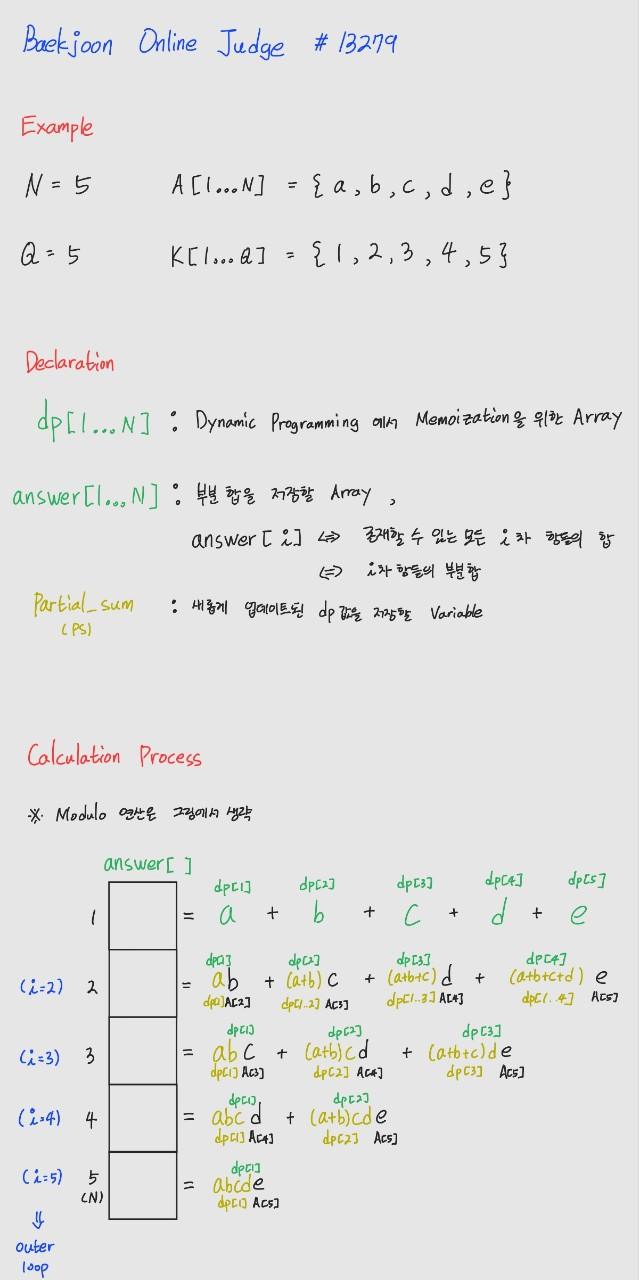 Baekjoon Online Judge # 13279
Example
N = 5 A[1...N] = { a, b, c, d, e }
Q = 5 K[1...Q] = { 1, 2, 3, 4, 5 }
Declaration
dp[1...N] : Dynamic Programming 에서 Memoization을 위한 Array
answer[1...N] : 부분 합을 저장할 Array,
answer[i] ⇔ 존재할 수 있는 모든 i차 항들의 합
⇔ i차 항들의 부분합
Partial_sum : 새롭게 업데이트된 dp값을 저장할 Variable
(PS)
Calculation Process
※ Modulo 연산은 그림에서 생략
answer[ ]
dp[1] dp[2] dp[3] dp[4] dp[5]
1 = a + b + c + d + e
dp[1] dp[2] dp[3] dp[4]
(i=2) 2 = ab + (a+b)c + (a+b+c)d + (a+b+c+d)e
dp[1] A[2] dp[1..2] A[3] dp[1..3] A[4] dp[1..4] A[5]
dp[1] dp[2] dp[3]
(i=3) 3 = abc + (a+b)cd + (a+b+c)de
dp[1] A[3] dp[2] A[4] dp[3] A[5]
dp[1] dp[2]
(i=4) 4 = abcd + (a+b)cde
dp[1] A[4] dp[2] A[5]
dp[1]
(i=5) 5 = abcde
(N) dp[1] A[5]
⇓
outer
loop